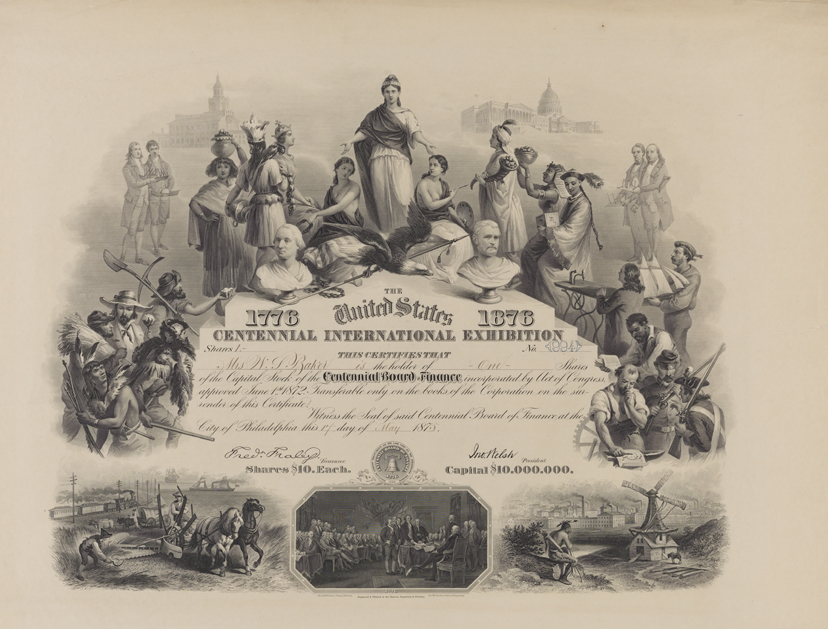 THE
United States
1776 1876
CENTENNIAL INTERNATIONAL EXHIBITION
Shares 1.- No.
THIS CERTIFIES THAT
Mrs W. S. Baker is the holder of - One - Shares
of the Capital Stock of the Centennial Board of Finance, incorporated by Act of Congress,
approved June 1st 1872. Transferable only on the books of the Corporation on the sur-
render of this Certificate.
Witness the Seal of said Centennial Board of Finance at the
City of Philadelphia this 17 day of May 1875.
Fredk Fraley Jno. Welsh
President
Shares $10. Each. Capital $10.000.000.